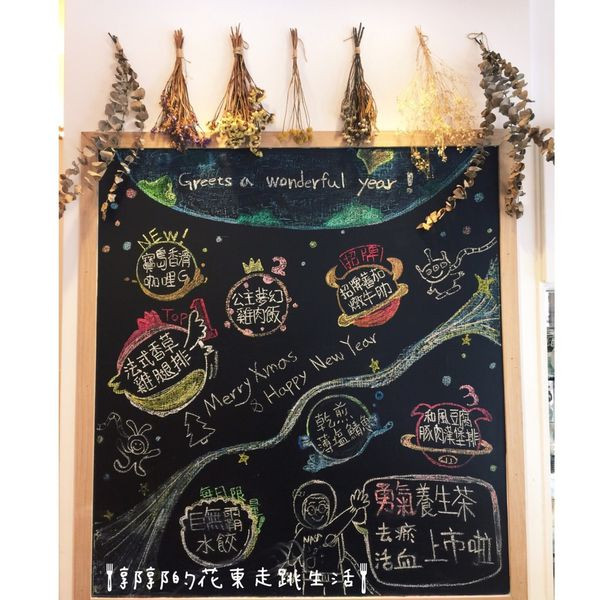 Greets a wonderful year!
NEW!
寶島香濃
咖哩G
2
公主夢幻
雞肉飯
招牌
招牌蕃加
燉牛肋
Top 1
法式香草
雞腿排
Merry Xmas
& Happy New Year
乾煎
薄塩鯖魚
3
和風豆腐
豚肉漢堡排
每日限量
巨無霸
水餃
勇氣養生茶
去瘀
活血
上市啦
郭郭的花東走跳生活